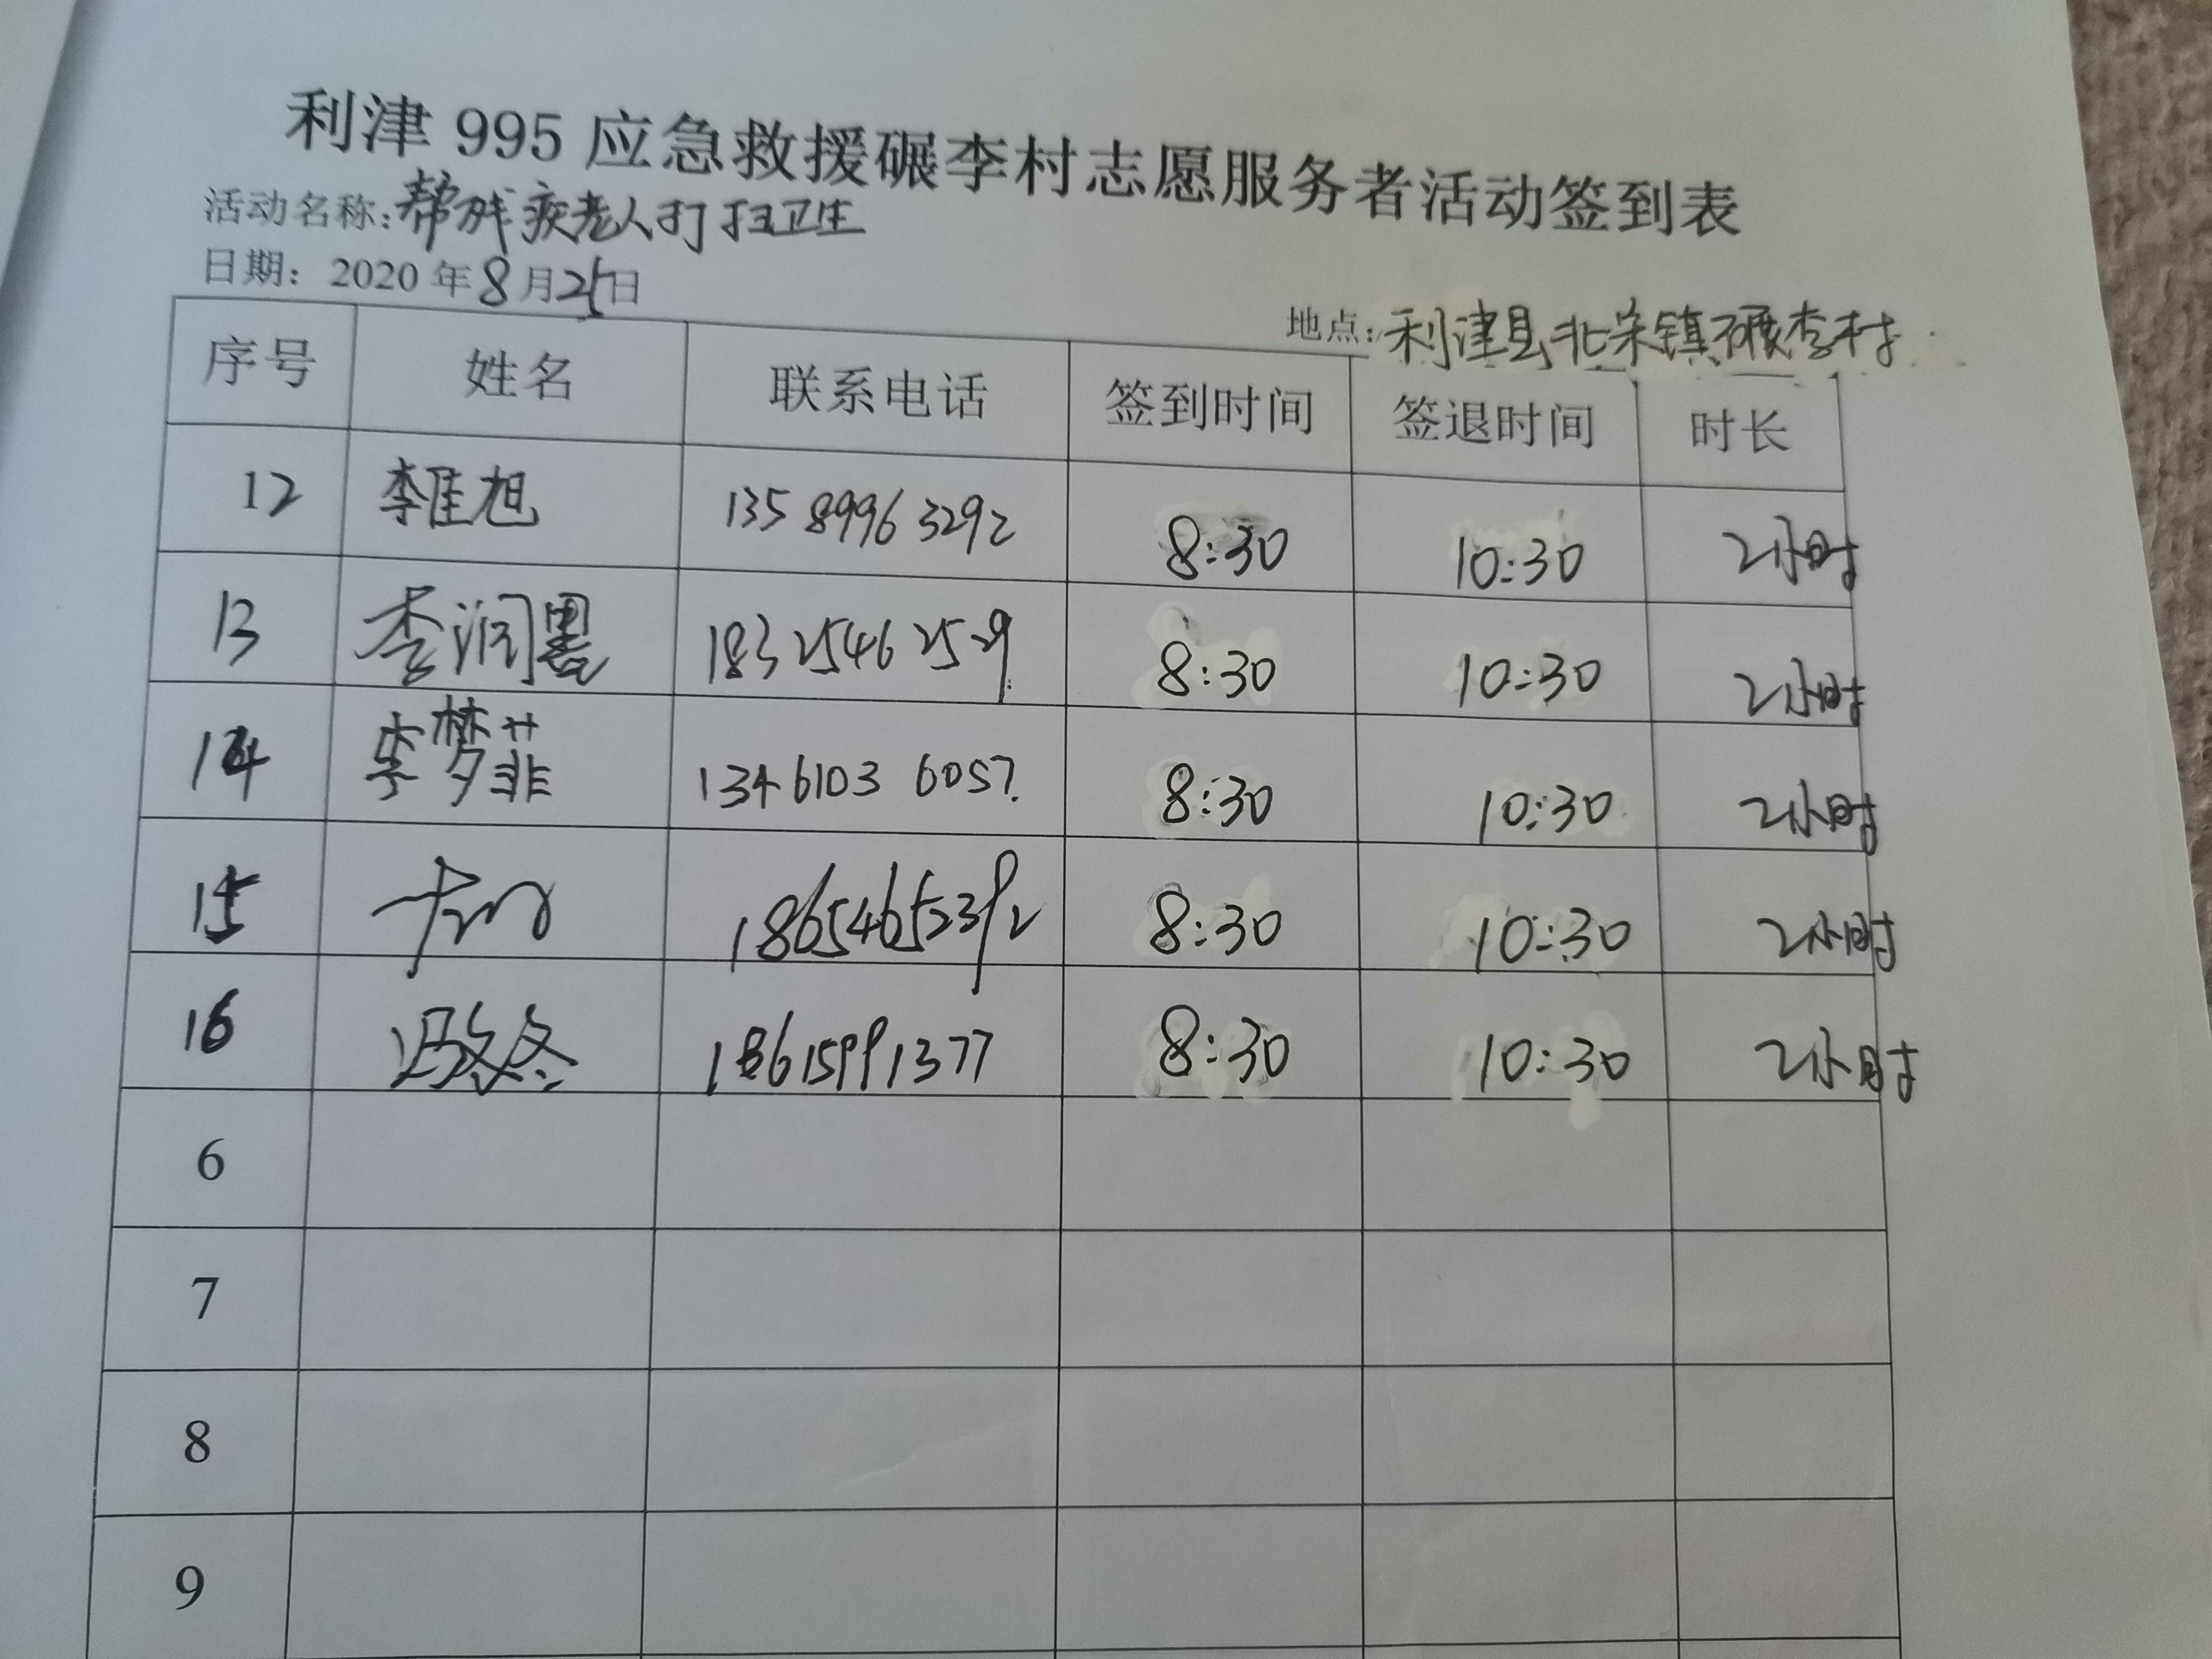 利津 995 应急救援碾李村志愿服务者活动签到表
活动名称:帮残疾老人打扫卫生
日期：2020年8月25日
地点:利津县北宋镇碾李村
序号 姓名 联系电话 签到时间 签退时间 时长
12 李佳旭 135 8996 3292 8:30 10:30 2小时
13 李润墨 183 2546 2529 8:30 10:30 2小时
14 李梦菲 134 6103 6057. 8:30 10:30 2小时
15 18654652392 8:30 10:30 2小时
16 18615991377 8:30 10:30 2小时
6
7
8
9